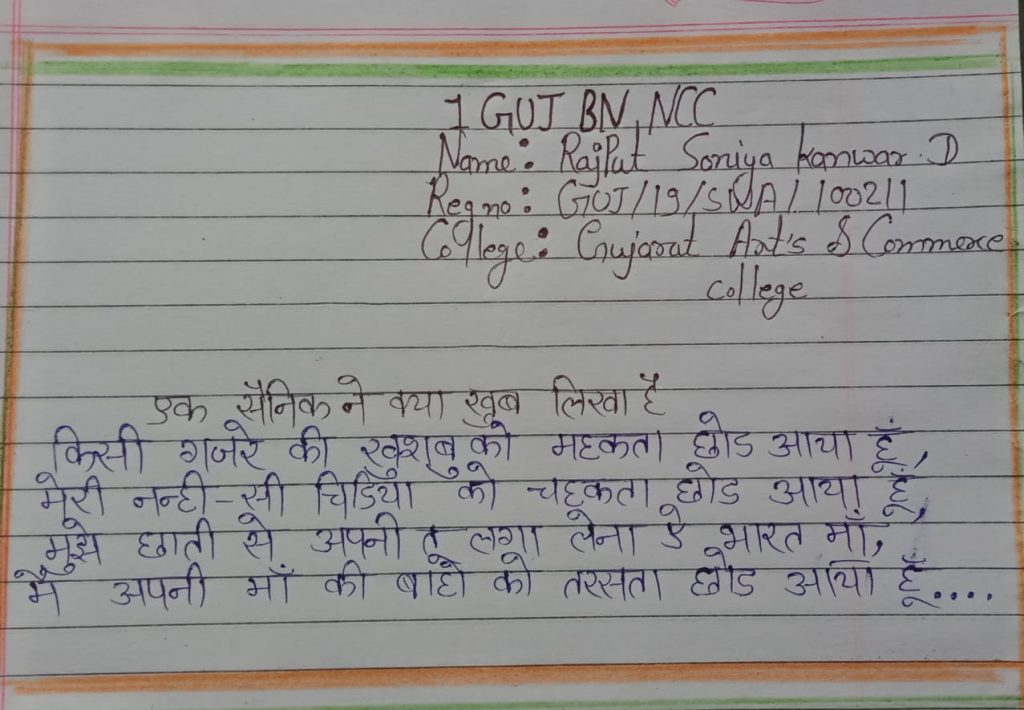 1 GUJ BN, NCC
Name: RajPut Soniya kanwar. D
Reg no: GUJ/19/SWA/100211
College: Gujarat Art's & Commerce
college
एक सैनिक ने क्या खुब लिखा है
किसी गजरे की खुशबु को महकता छोड आया हूँ,
मेरी नन्ही-सी चिडिया को चहकता छोड आया हूँ,
मुझे छाती से अपनी तु लगा लेना ऐ भारत माँ,
मैं अपनी माँ की बाहो को तरसता छोड आया हूँ....